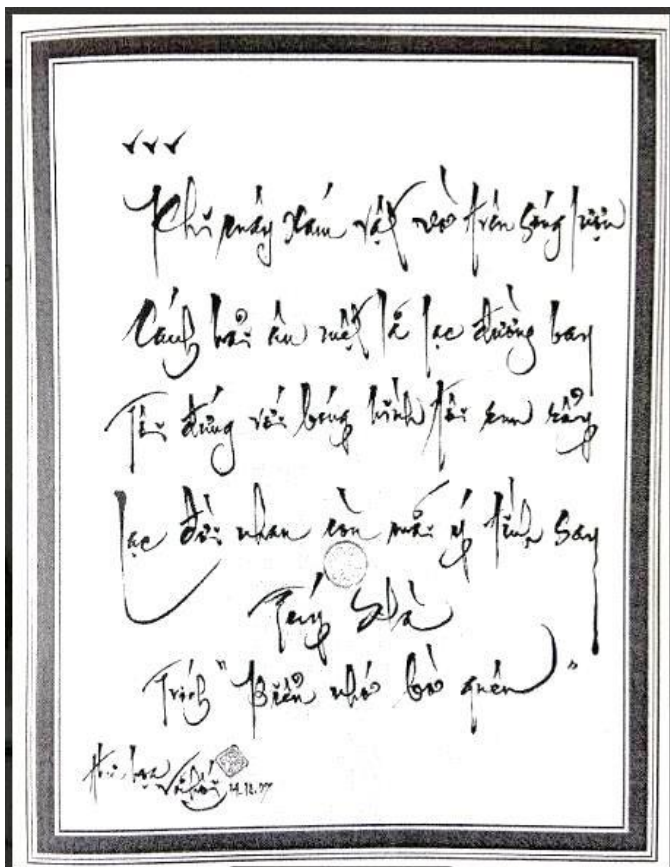 Khi mây xám vật vờ trên sóng lượn
Cánh hải âu mệt lả lạc đường bay
Tôi đứng với bóng hình tôi run rẩy
Lạc đời nhau còn mãi ý tình say
Trích "Biển nhớ bờ quên"
14.12.97